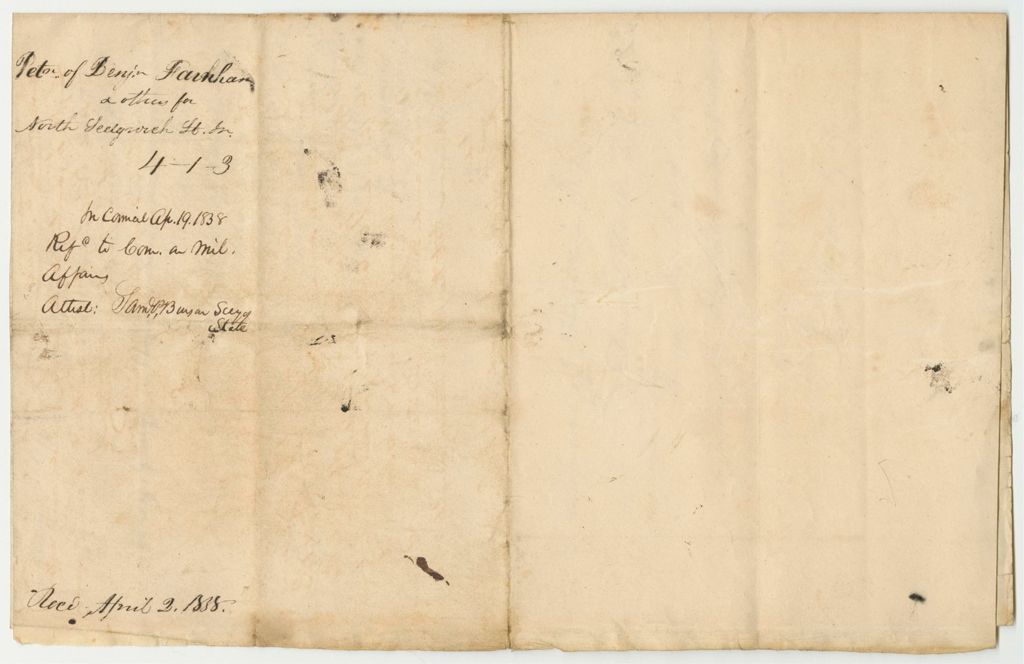 Petn. of Benjn Farnham
& others for
North Sedgwick Lt. In.
4-1-3
In Council Ap. 19. 1838
Refd to Com. on Mil.
Affairs
Attest: Saml P. Benson Secy of
State
Recd. April 2. 1838.